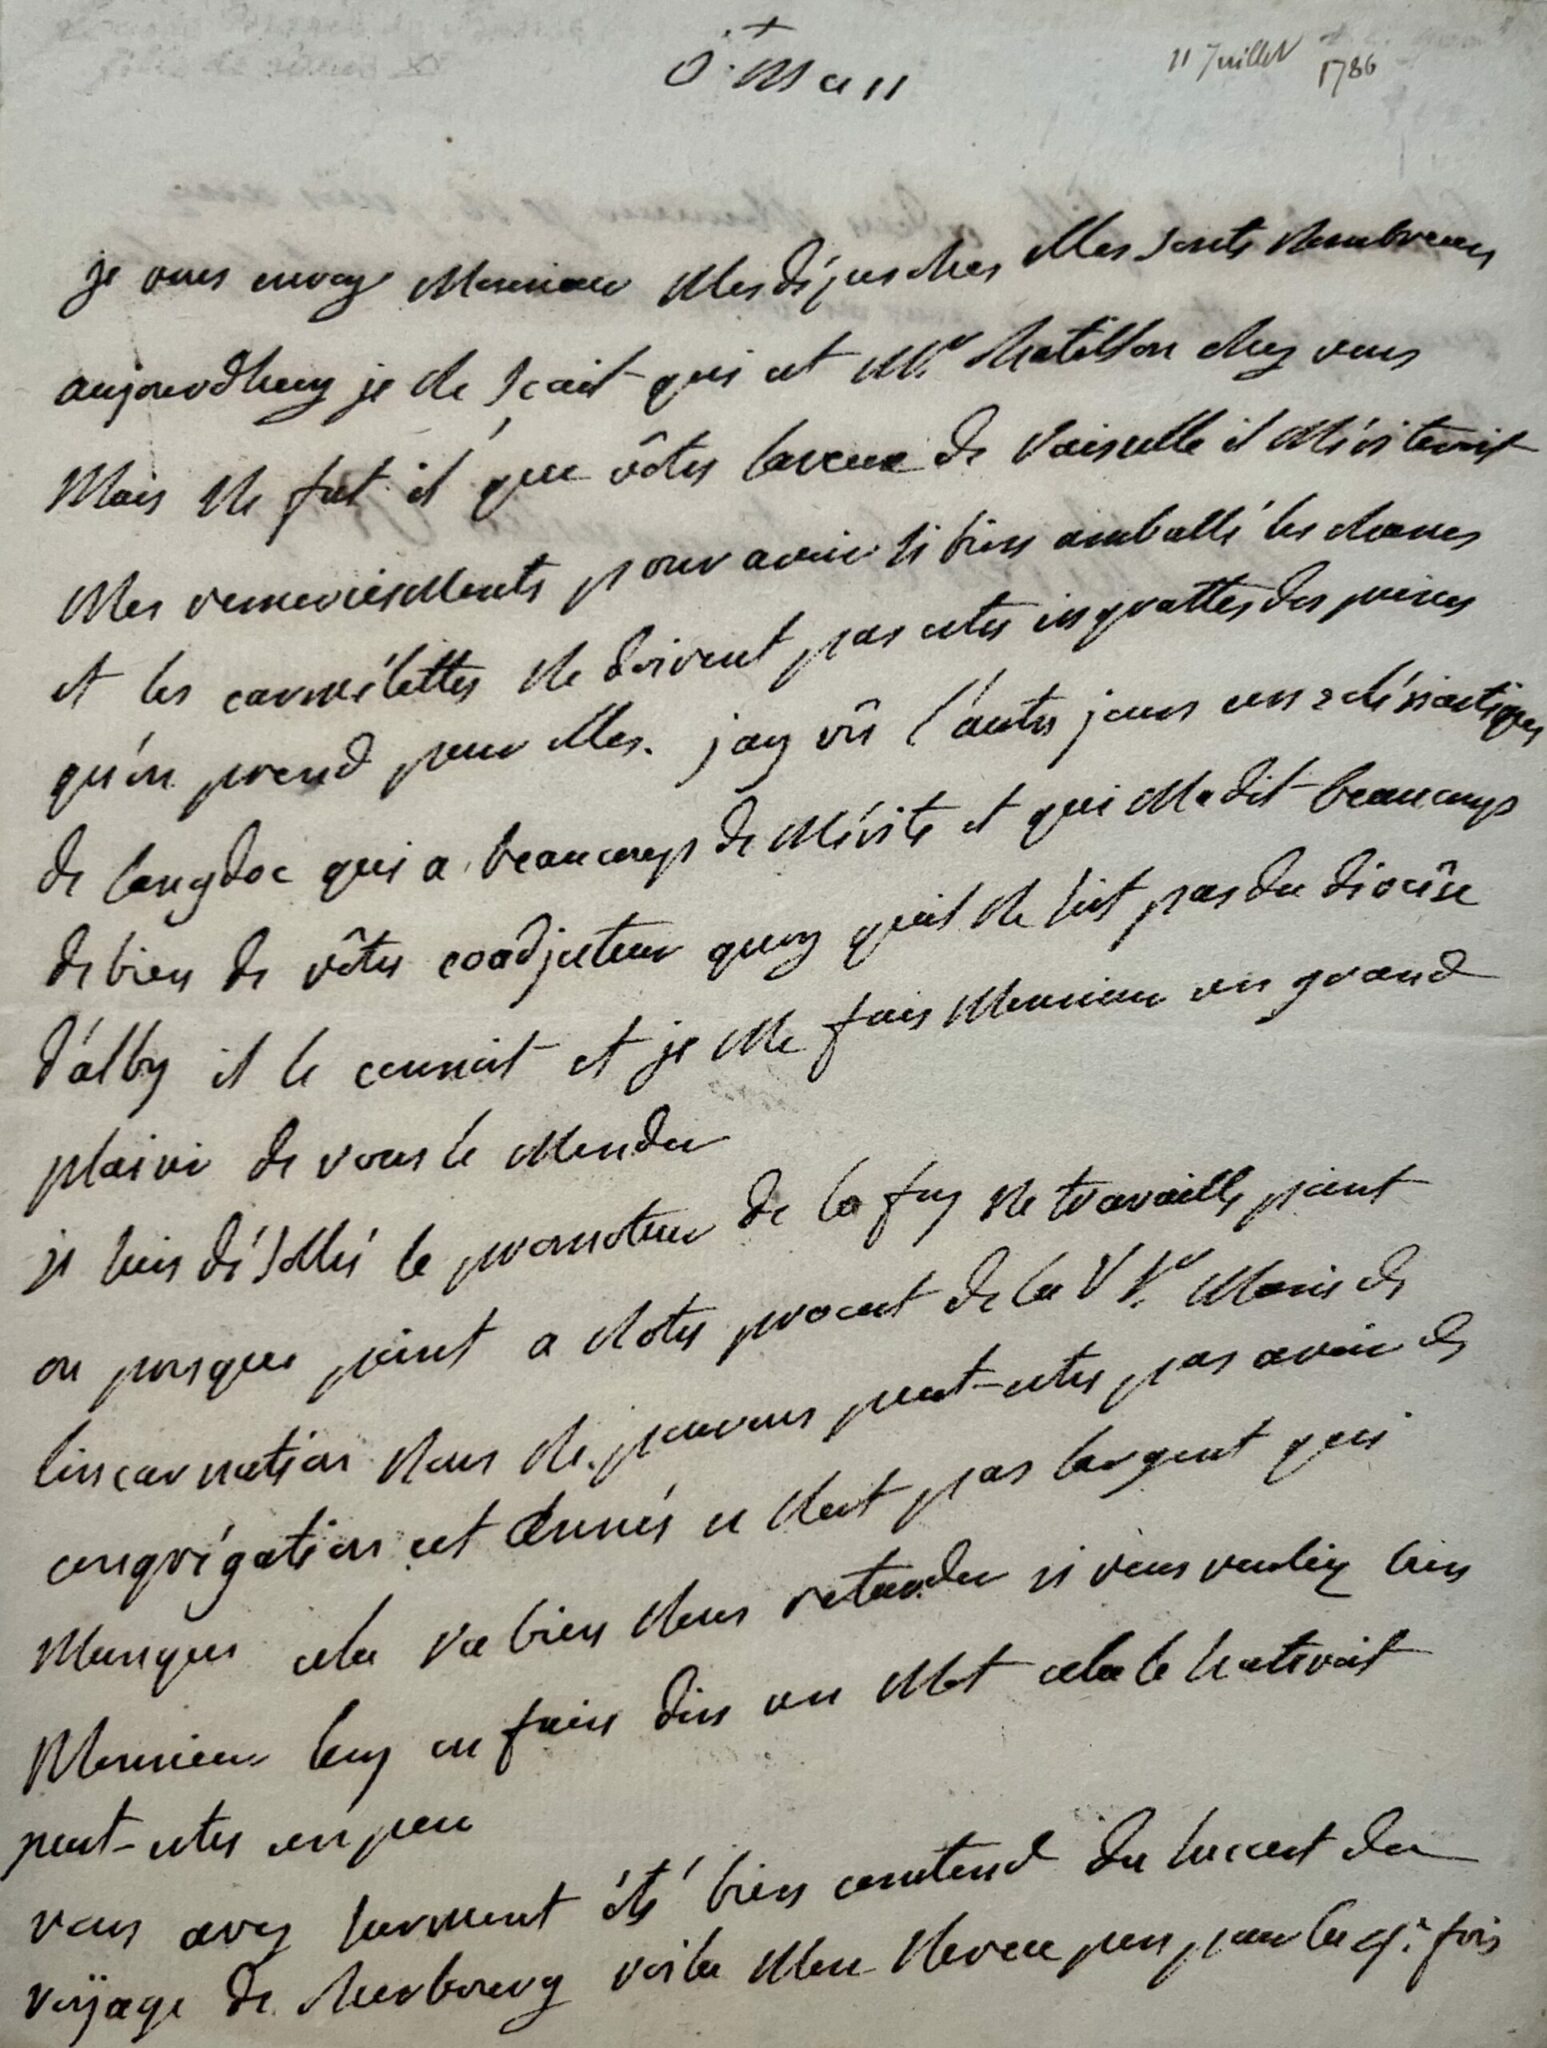 11 Juillet 1786
je vous envoye Monsieur Mes dépesches Elles sonts Nombreuses
aujourdhuy je Ne scait qui est Mr. Chatillon chez vous
Mais Ne fut il que vôtre laveur de Vaisselle il Mériteroit
Mes remerciesMents pour avoir si bien amballé les
et les carmélittes Ne doivent pas estre ingrattes des peines
qu'on prend pour Elles. j'ay vû l'autre jour un
de langdoc qui a beaucoup de Mérite et qui Ma dit beaucoup
de bien de vôtre coadjuteur quoy quil Ne soit pas du diocêse
d'alby il le connoit et je Me fais Monsieur un grand
plaisir de vous le Mender
je suis désollée le promoteur de la foy Ne travaille point
ou presque point a Notre procest de la V Sr. Marie de
lincarnation Nous Ne pouvons peut-estre pas avoir de
congrégation cet année ce Nest pas largent qui
Manque cela va bien Nous retarder si vous vouliez bien
Monsieur luy en faire dire un Mot cela le hateroit
peut-estre un peu
vous avez surement été bien contend du succest du
voÿage de cherbourg voila Mon Neveu per pour la 4e. fois